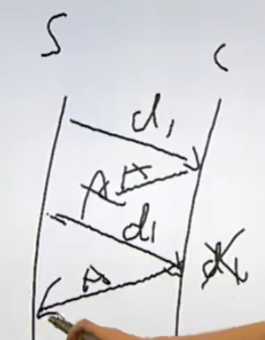 S C
d1
A
d1
A
d1